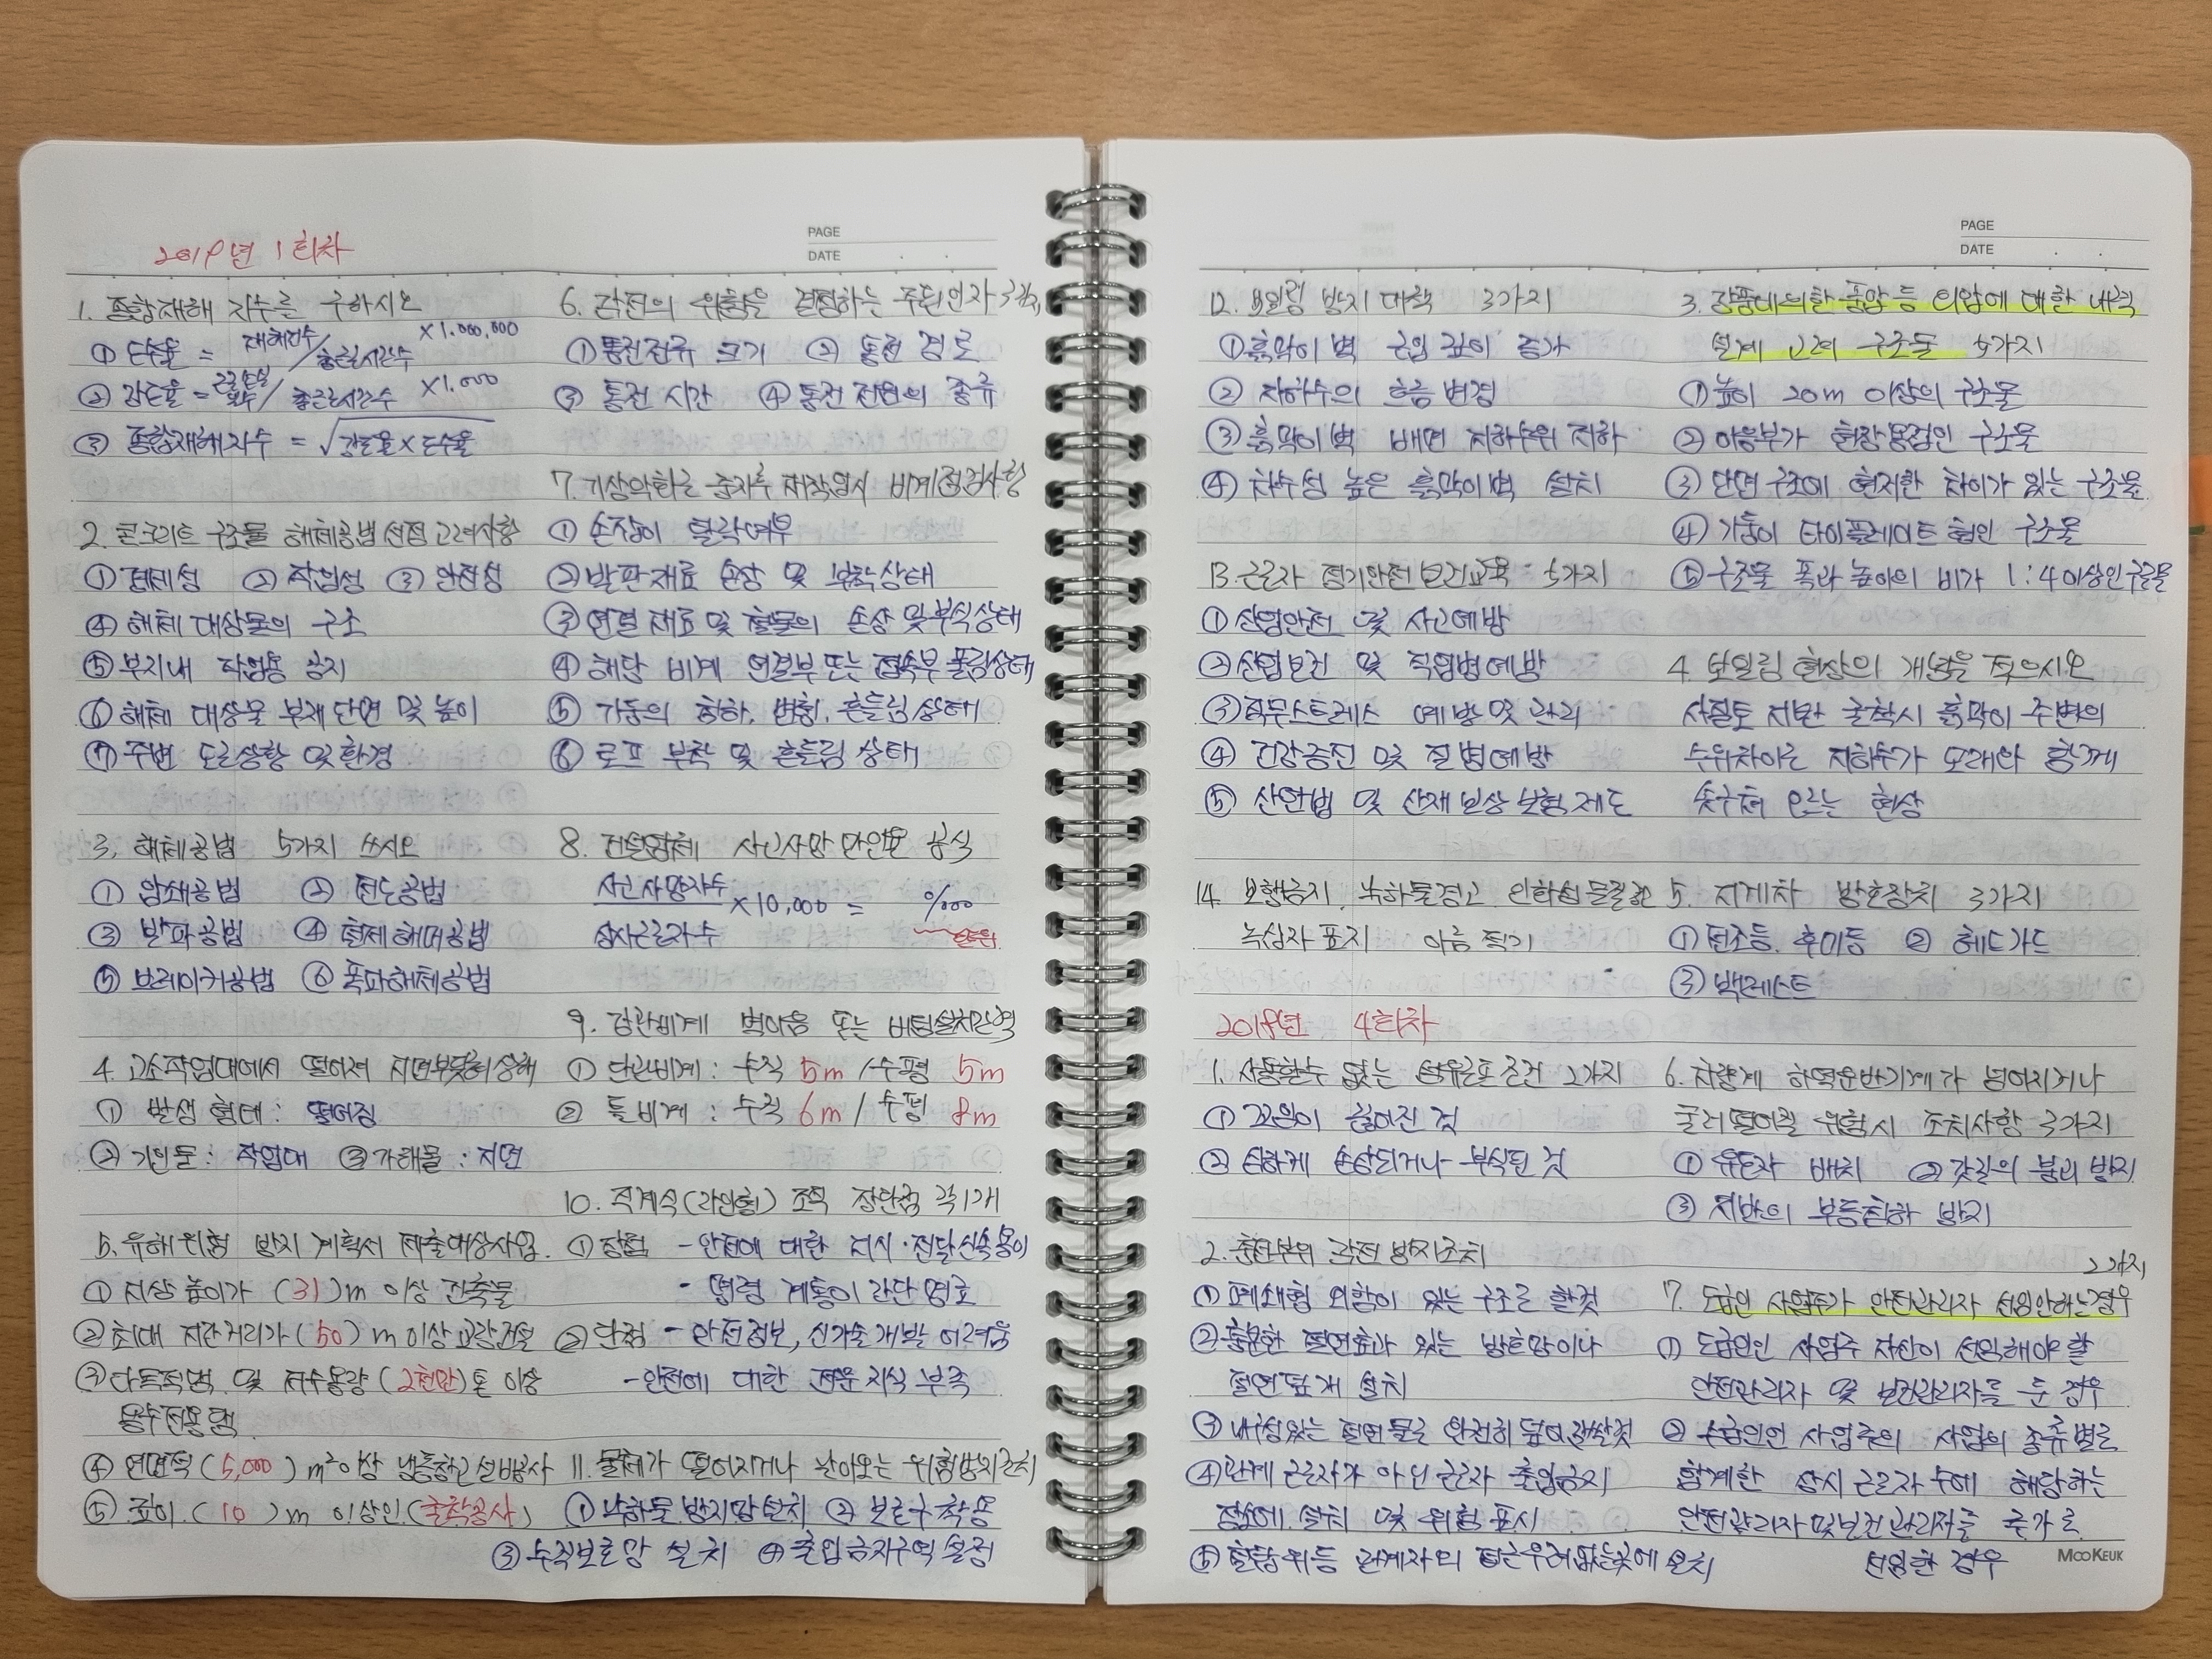 PAGE
DATE
2019년 1회차
1. 종합재해 지수를 구하시오
① 도수율 = 재해건수/총근로시간수 ×1,000,000
② 강도율 = 근로손실일수/총근로시간수 ×1,000
③ 종합재해지수 = √강도율×도수율
2. 콘크리트 구조물 해체공법 선정 고려사항
① 경제성 ② 작업성 ③ 안전성
④ 해체 대상물의 구조
⑤ 부지내 작업용 공지
⑥ 해체 대상물 부재단면 및 높이
⑦ 주변 도로상황 및 환경
3. 해체공법 5가지 쓰시오
① 압쇄공법 ② 전도공법
③ 발파공법 ④ 해머공법
⑤ 브레이커공법 ⑥ 폭파해체공법
4. 고소작업대에서 떨어져 지면부딪혀 상해
① 발생형태 : 떨어짐
② 기인물 : 작업대 ③ 가해물 : 지면
5. 유해위험 방지 계획서 제출대상사업.
① 지상높이가 (31)m 이상 건축물
② 최대 지간거리가 (50)m 이상 교량건설
③ 다목적댐 및 저수용량 (2천만)톤 이상
용수전용댐
④ 연면적 (5,000)m²이상 냉동창고설비공사
⑤ 깊이 (10)m 이상인 (굴착공사)
6. 감전의 위험을 결정하는 주된인자 3가지
① 통전전류 크기 ② 통전 경로
③ 통전 시간 ④ 통전 전원의 종류
7. 기상악화로 중지후 재작업시 비계점검사항
① 손잡이 탈락여부
② 발판재료 손상 및 부착상태
③ 연결 재료 및 철물의 손상 및 부식상태
④ 해당 비계 연결부 또는 접속부 풀림상태
⑤ 기둥의 침하, 변형, 흔들림 상태
⑥ 로프 부착 및 흔들림 상태
8. 건설업체 사고사망 만인율 공식
사고사망자수
×10,000 = ‱
상시근로자수
9. 강관비계 벽이음 또는 버팀설치간격
① 단관비계 : 수직 5m / 수평 5m
② 틀비계 : 수직 6m / 수평 8m
10. 직계식(라인형) 조직 장단점 각1개
① 장점 - 안전에 대한 지시·전달 신속 용이
- 명령 계통이 간단명료
② 단점 - 안전정보, 신기술개발 어려움
- 안전에 대한 전문지식 부족
11. 물체가 떨어지거나 날아오는 위험방지조치
① 낙하물 방지망 설치 ② 보호구 착용
③ 수직보호망 설치 ④ 출입금지구역 설정
PAGE
DATE
12. 보일링 방지 대책 3가지
① 흙막이 벽 근입 깊이 증가
② 지하수의 흐름 변경
③ 흙막이벽 배면 지하수위 저하
④ 차수성 높은 흙막이벽 설치
13. 근로자 정기안전보건교육 5가지
① 산업안전 및 사고예방
② 산업보건 및 직업병예방
③ 직무스트레스 예방 및 관리
④ 건강증진 및 질병예방
⑤ 산안법 및 산재보상보험제도
14. 보행금지, 낙하물경고, 인화성물질경고
녹십자 표지 이름 적기
2018년 4회차
1. 사용할수 없는 섬유로프 조건 2가지
① 꼬임이 끊어진 것
② 심하게 손상되거나 부식된 것
2. 충전부위 감전 방지조치
① 폐쇄형 외함이 있는 구조로 할것
② 충분한 절연효과 있는 방호망이나
절연덮개 설치
③ 내구성있는 절연물로 완전히 덮어 감쌀것
④ 관계 근로자가 아닌 근로자 출입금지
장소에 설치 및 위험 표시
⑤ 철탑위등 관계자외 접근우려없는곳에 설치
3. 강풍에의한 풍압등 외압에 대한 내력
설계 고려 구조물 5가지
① 높이 20m 이상의 구조물
② 이음부가 현장용접인 구조물
③ 단면구조에 현저한 차이가 있는 구조물
④ 기둥이 타이플레이트형인 구조물
⑤ 구조물 폭과 높이의 비가 1:4이상인구조물
4. 보일링 현상의 개념을 적으시오
사질토 지반 굴착시 흙막이 주변의
수위차이로 지하수가 모래와 함께
솟구쳐 오르는 현상
5. 지게차 방호장치 3가지
① 전조등, 후미등 ② 헤드가드
③ 백레스트
6. 차량계 하역운반기계가 넘어지거나
굴러떨어질 위험시 조치사항 3가지
① 유도자 배치 ② 갓길의 붕괴 방지
③ 지반의 부동침하 방지
2가지
7. 도급인 사업주가 안전관리자 선임안하는경우
① 도급인인 사업주 자신이 선임해야 할
안전관리자 및 보건관리자를 둔 경우
② 수급인인 사업주의 사업의 종류별로
합계한 상시 근로자 수에 해당하는
안전관리자및보건관리자를 추가로
선임한 경우
MOOKEUK